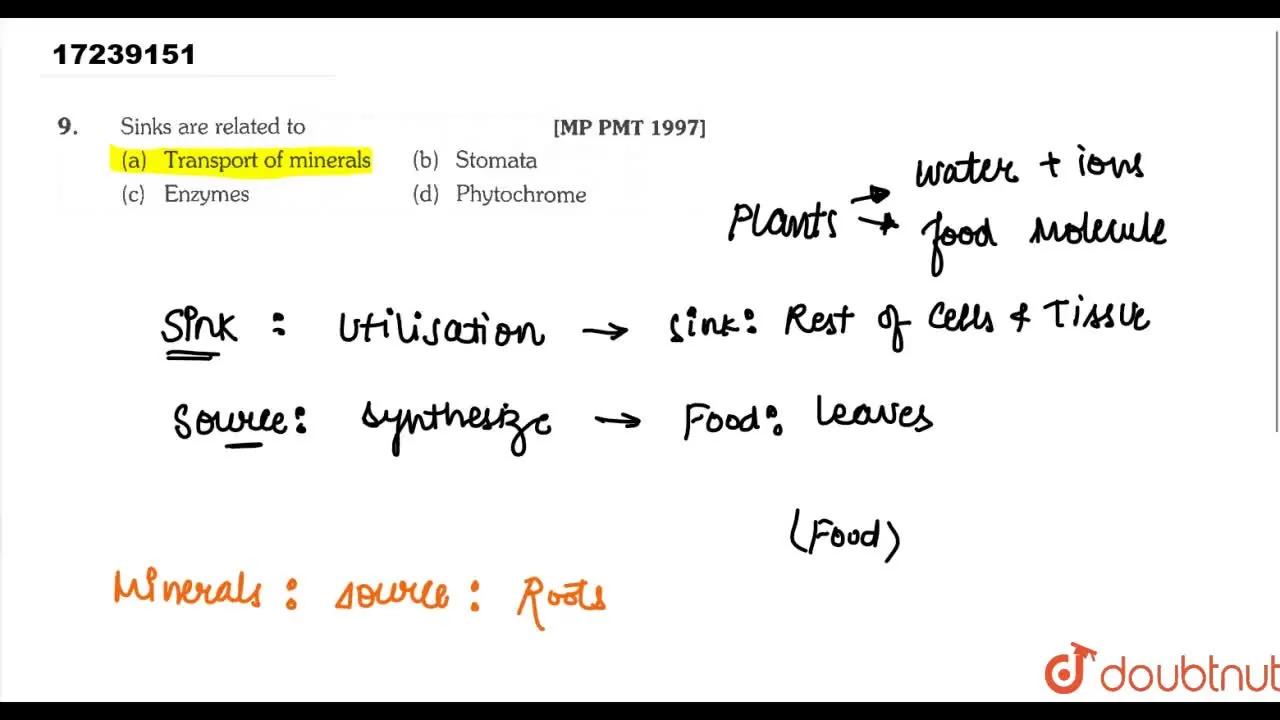 17239151
9. Sinks are related to [MP PMT 1997]
(a) Transport of minerals (b) Stomata
(c) Enzymes (d) Phytochrome
Plants → water + ions
→ food molecule
Sink : Utilisation → Sink: Rest of cells & Tissue
Source: Synthesize → Food: leaves
(Food)
Minerals : source : Roots
doubtnut